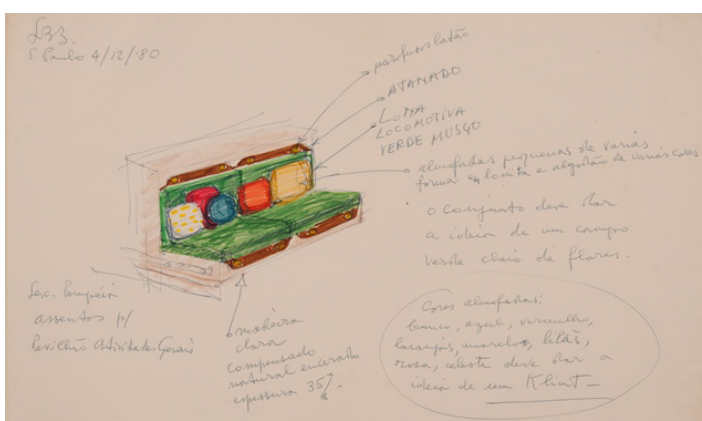 LBB.
S. Paulo 4/12/'80
parafusos latão
ATANADO
LONA
LOCOMOTIVA
VERDE MUSGO
almofadas pequenas de varias
formas em lonita e algodão de varias cores
o conjunto deve dar
a ideia de um campo
verde cheio de flores.
Sesc. Pompéia
assentos p/
Pavilhão Atividades Gerais
madeira
clara
compensado
natural encerado
espessura 35
Cores almofadas:
branco, azul, vermelho,
laranja, amarelo, lilás,
rosa, celeste deve dar a
ideia de um Klimt —